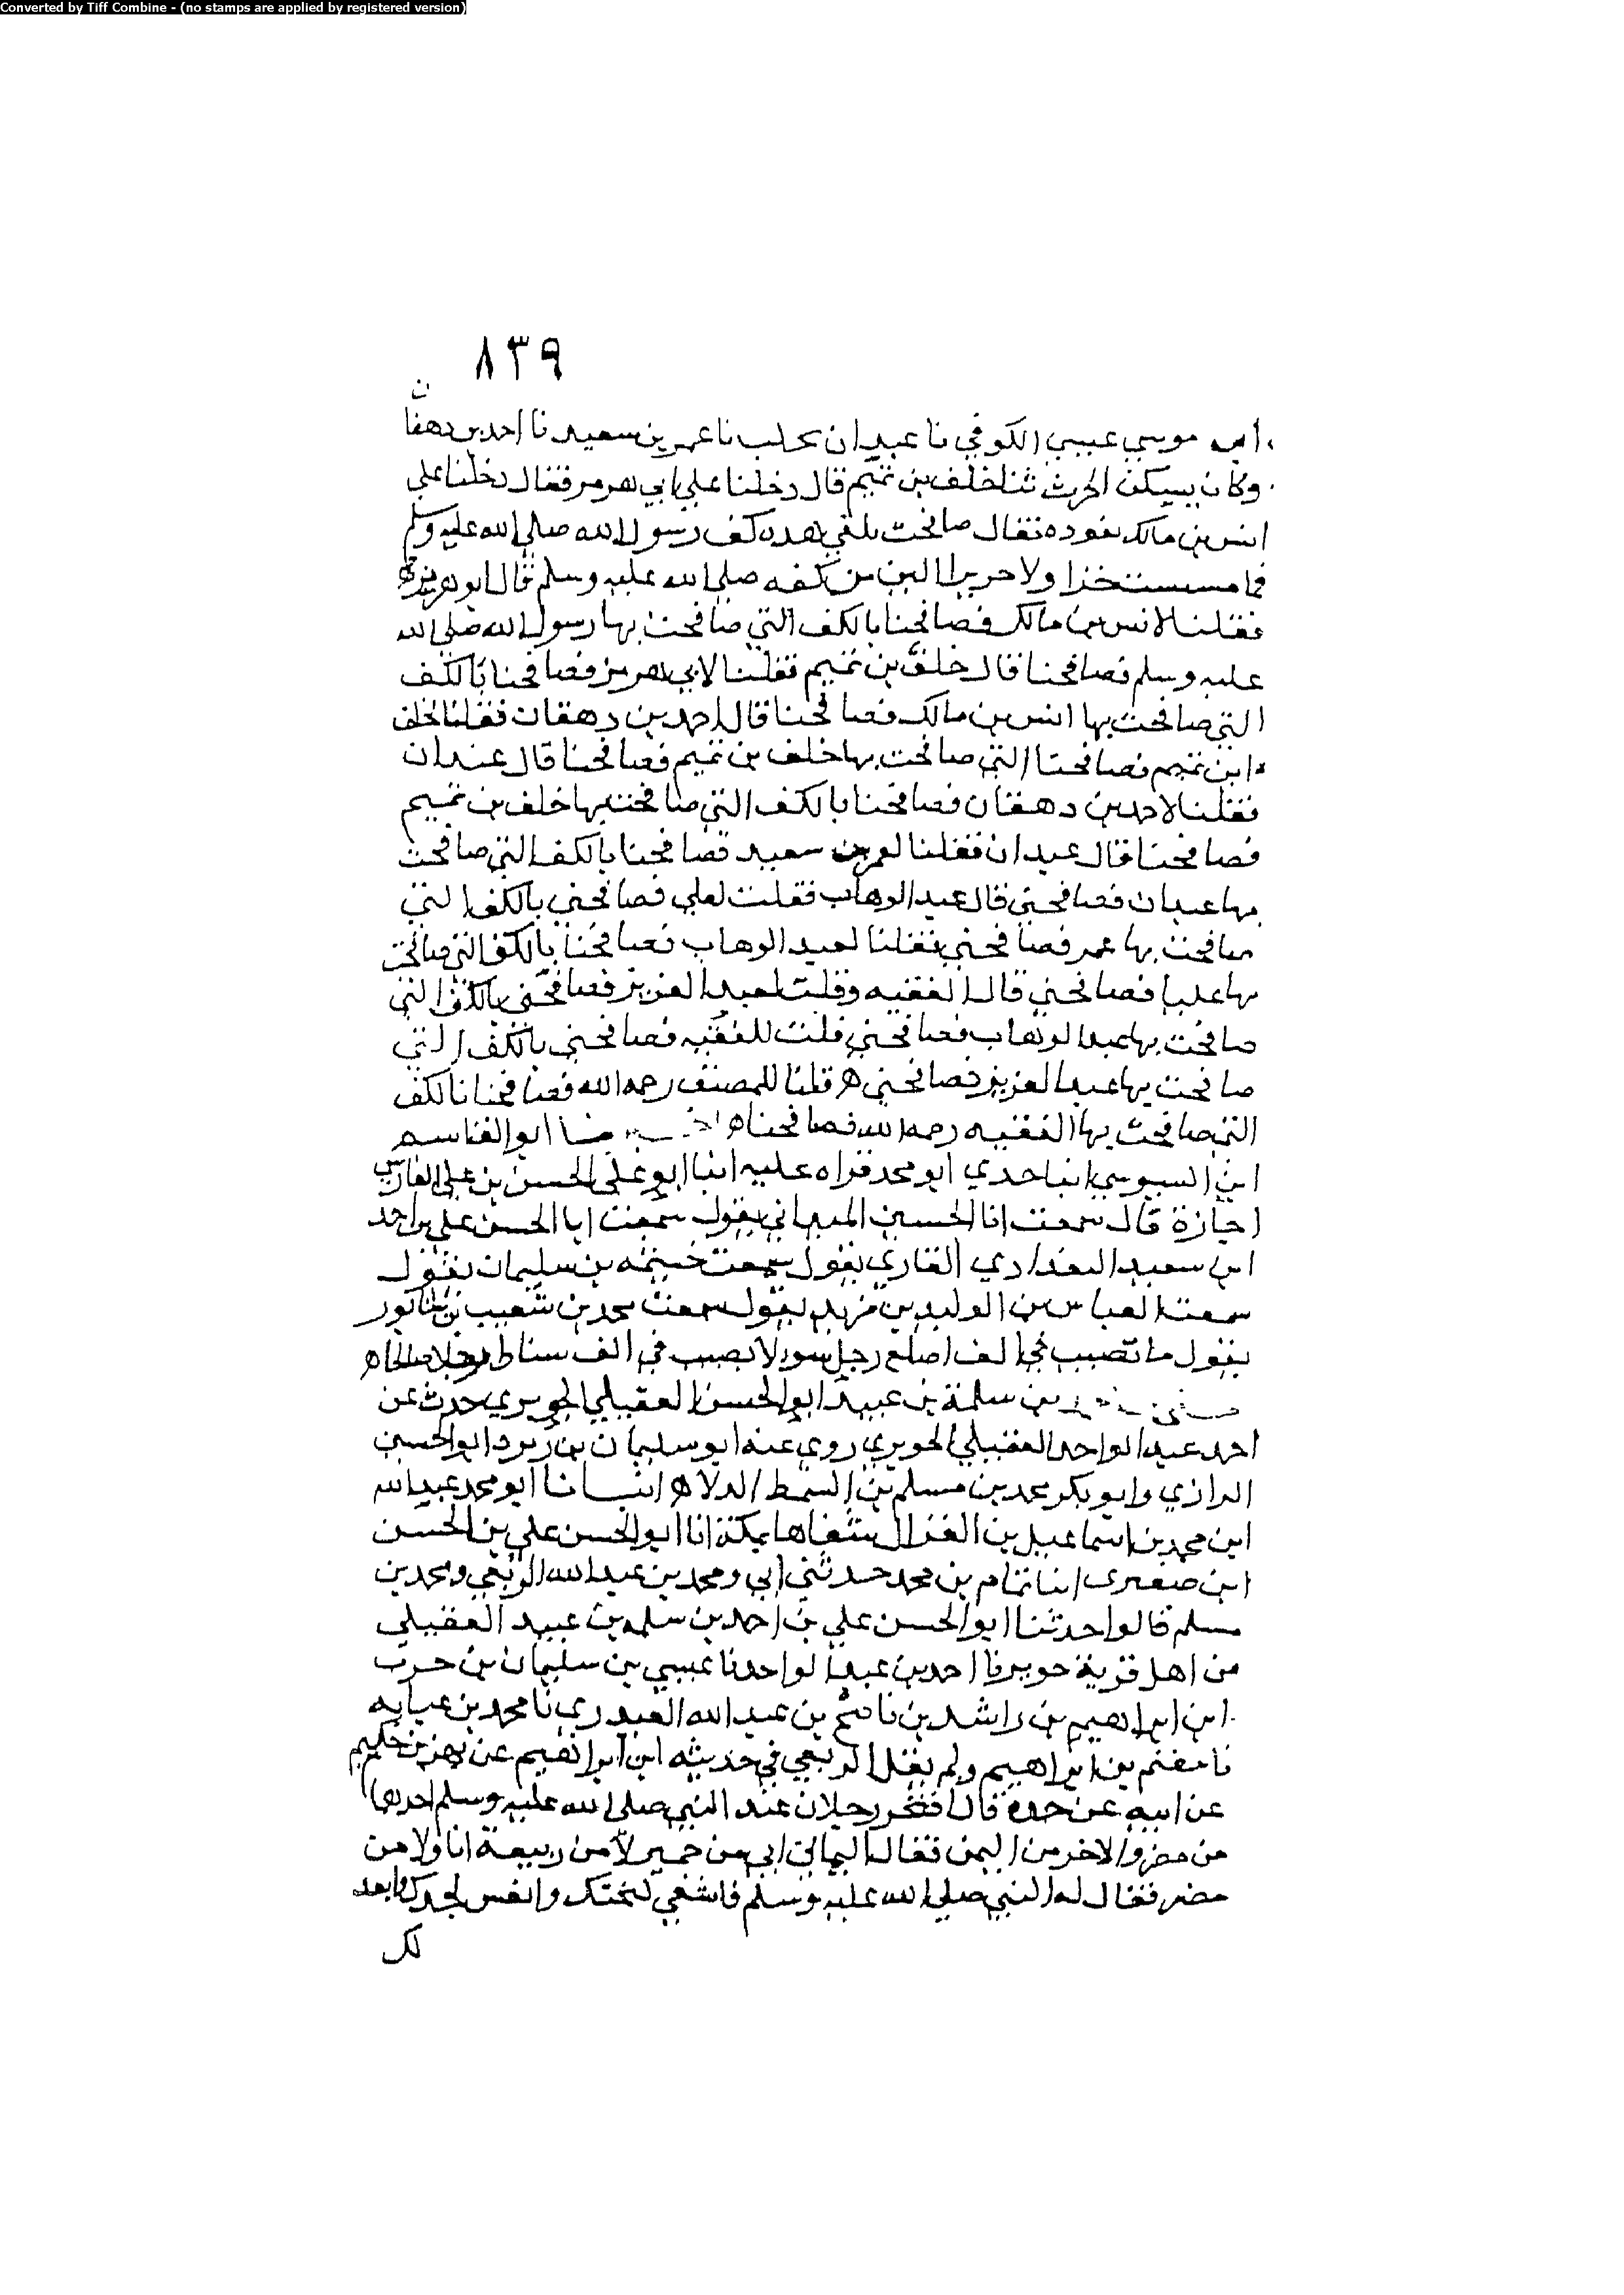 Converted by Tiff Combine - (no stamps are applied by registered version)
٨٣٩
ن
ابن موسي عيسي الكوفي نا عبدان بحلب نا عمر بن سعيد نا احمد بن دهقا
وكان يسكن الحرث ثنا خلف بن تميم قال دخلنا علي ابي هرمز فقال دخلنا علي
انس بن مالك نعوده فقال صافحت بكفي هذه كف رسول الله صلي الله عليه وسلم
فما مسست خزا ولا حريرا الين من كفه صلي الله عليه وسلم قال ابو هرمز
فقلنا لانس بن مالك فصافحنا بالكف التي صافحت بها رسول الله صلي الله
عليه وسلم فصافحنا قال خلف بن تميم فقلنا لابي هرمز فصافحنا بالكف
التي صافحت بها انس بن مالك فصافحنا قال احمد بن دهقان فقلنا لخلف
ابن تميم فصافحنا التي صافحت بها خلف بن تميم فصافحنا قال عبدان
فقلنا لاحمد بن دهقان فصافحنا بالكف التي صافحت بها خلف بن تميم
فصافحنا قال عبدان فقلنا لعمر بن سعيد فصافحنا بالكف التي صافحت
بها عبدان فصافحني قال عبد الوهاب فقلت لعلي فصافحني بالكف التي
صافحت بها عمر فصافحني فقلنا لعبد الوهاب فصافحنا بالكف التي صافحت
بها عليا فصافحني قال الفقيه وقلت لعبد العزيز فصافحني بالكف التي
صافحت بها عبد الوهاب فصافحني قلت للفقيه فصافحني بالكف التي
صافحت بها عبد العزيز فصافحني ه قلنا للمصنف رحمه الله فصافحنا بالكف
التي صافحت بها الفقيه رحمه الله فصافحنا ه ابو القاسم
ابن السيوسي انبا جدي ابو محمد قراه عليه انبا ابو علي الحسن بن علي الفارسي
اجازة قال سمعت انا الحسين الميهاني يقول سمعت ابا الحسن علي بن احمد
ابن سعيد البغدادي القاري يقول سمعت خيثمه بن سليمان يقول
سمعت العباس بن الوليد بن مزيد يقول سمعت محمد بن شعيب بن شابور
يقول ما تصيب في الف اصلع رجل سوء لا يصيب في الف سناط رجلا صالحا ه
بن سلمة بن عبيد ابو الحسن العقيلي الجوبري حدث عن
احمد عبد الواحد العقيلي الجوبري روي عنه ابو سليمان بن زبر وابو الحسين
الرازي وابو بكر محمد بن مسلم بن السمط الدلا ه انبانا ابو محمد عبد الله
ابن محمد بن اسماعيل بن الغزال شفاها بمكة انا ابو الحسن علي بن الحسن
ابن صصرى انا تمام بن محمد حدثني ابي ومحمد بن عبد الله الربعي ومحمد بن
مسلم قالوا حدثنا ابو الحسن علي بن احمد بن سلمه بن عبيد العقيلي
من اهل قرية جوبر نا احمد بن عبد الواحد نا عيسي بن سليمان بن حرب
ابن ابراهيم بن راشد بن ناصح بن عبد الله العبدري نا محمد بن عبايه
نا مغنم بن ابراهيم ولم يقل الربعي في حديثه ابن ابراهيم عن بهز بن حكيم
عن ابيه عن جده قال افتخر رجلان عند النبي صلي الله عليه وسلم احدهما
من مضر والاخر من اليمن فقال اليماني ابي من حمير لا من ربيعة انا ولا من
مضر فقال له النبي صلي الله عليه وسلم فاشقي لبختك واتعس لجدك وابعد
لك